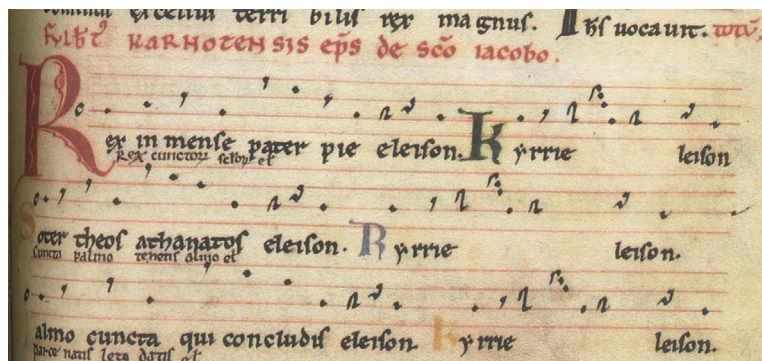 excelsus terri bilis rex magnus. Ihs uocauit.
fulbt' KARNOTENSIS ep̄s de sc̄o iacobo.
Rex in mense pater pie eleison. Kyrrie leison
Rex cunctorum
Soter theos athanatos eleison. Kyrrie leison.
Cuncta palmo tenens almo el
almo cuncta qui concludis eleison. Kyrrie leison.
parce natis leta datis el